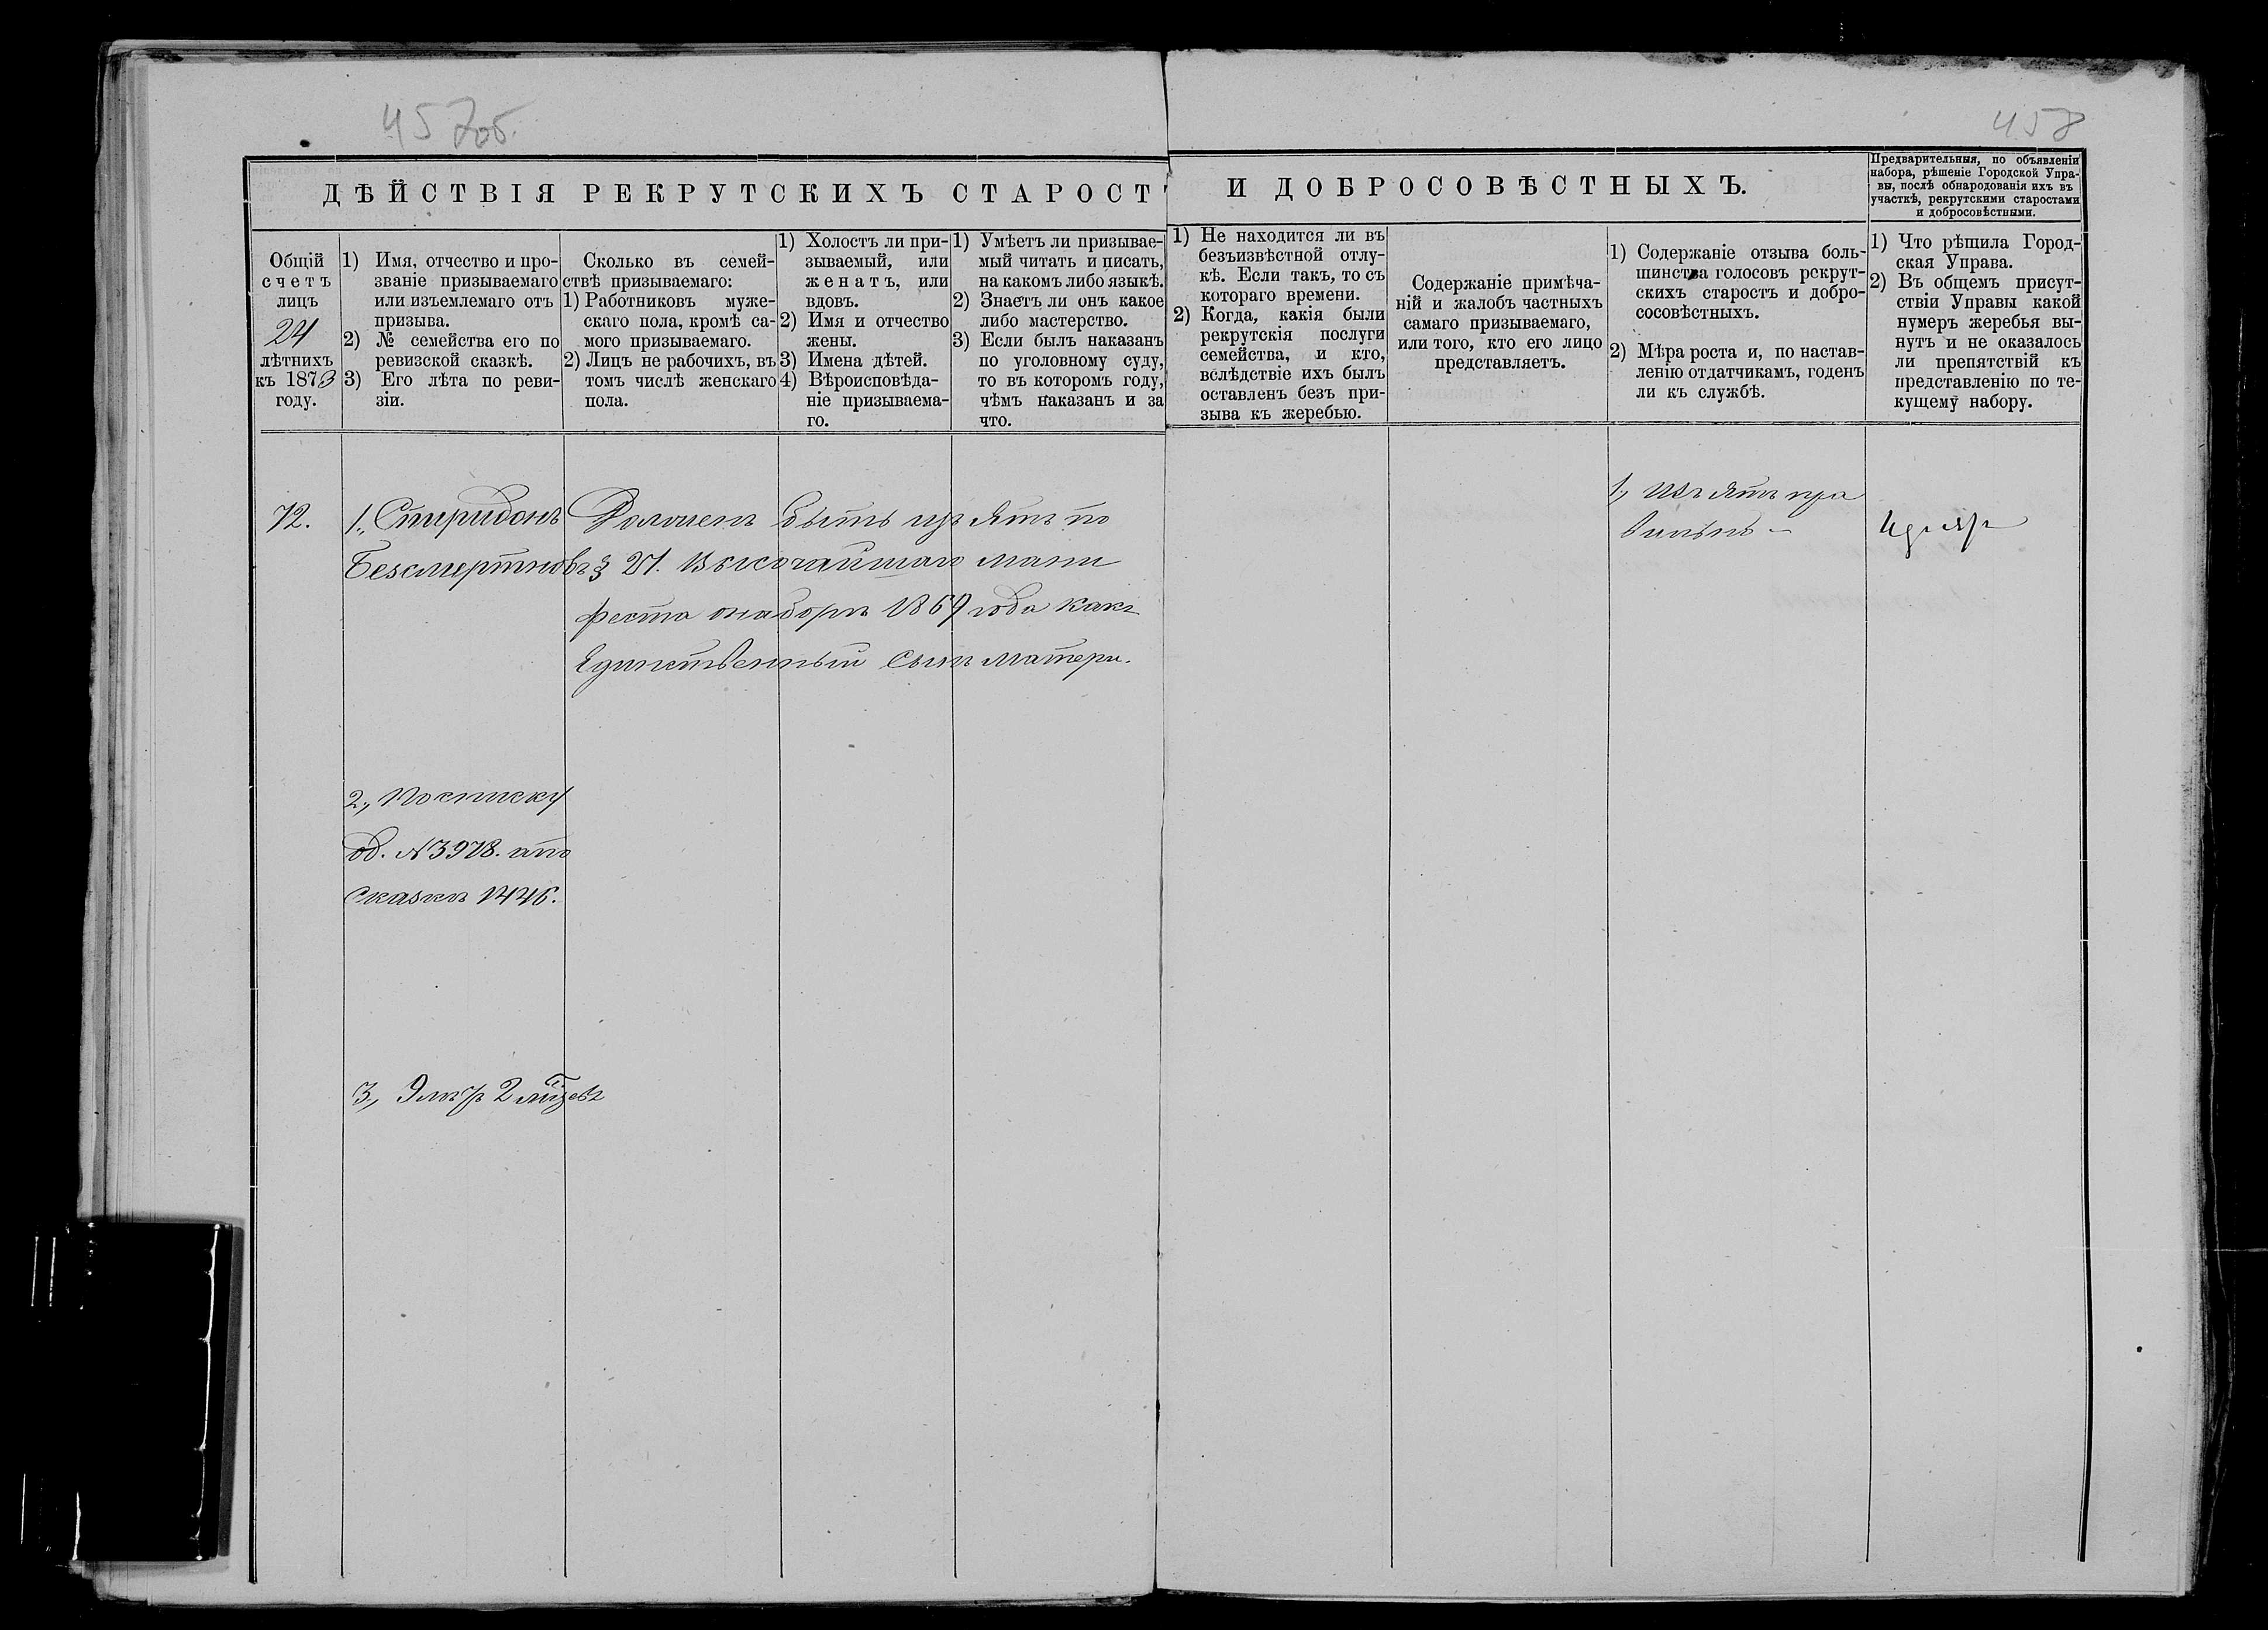 457об.
458
ДѢЙСТВІЯ РЕКРУТСКИХЪ СТАРОСТ
И ДОБРОСОВѢСТНЫХЪ.
Предварительныя, по объявленіи
набора, рѣшеніе Городской Упра-
вы, послѣ обнародованія ихъ въ
участкѣ, рекрутскими старостами
и добросовѣстными.
Общій
счетъ
лицъ
24
лѣтнихъ
къ 1873
году.
1) Имя, отчество и про-
званіе призываемаго
или изъемлемаго отъ
призыва.
2) № семейства его по
ревизской сказкѣ.
3) Его лѣта по реви-
зіи.
Сколько въ семей-
ствѣ призываемаго:
1) Работниковъ муже-
скаго пола, кромѣ са-
мого призываемаго.
2) Лицъ не рабочихъ, въ
томъ числѣ женскаго
пола.
1) Холостъ ли при-
зываемый, или
женатъ, или
вдовъ.
2) Имя и отчество
жены.
3) Имена дѣтей.
4) Вѣроисповѣда-
ніе призываема-
го.
1) Умѣетъ ли призывае-
мый читать и писать,
на какомъ либо языкѣ.
2) Знаетъ ли онъ какое
либо мастерство.
3) Если былъ наказанъ
по уголовному суду,
то въ которомъ году,
чѣмъ наказанъ и за
что.
1) Не находится ли въ
безъизвѣстной отлу-
кѣ. Если такъ, то съ
котораго времени.
2) Когда, какія были
рекрутскія послуги
семейства, и кто,
вслѣдствіе ихъ былъ
оставленъ безъ при-
зыва къ жеребью.
Содержаніе примѣча-
ній и жалобъ частныхъ
самаго призываемаго,
или того, кто его лицо
представляетъ.
1) Содержаніе отзыва боль-
шинства голосовъ рекрут-
скихъ старостъ и добро-
сосовѣстныхъ.
2) Мѣра роста и, по настав-
ленію отдатчикамъ, годенъ
ли къ службѣ.
1) Что рѣшила Город-
ская Управа.
2) Въ общемъ присут-
ствіи Управы какой
нумеръ жеребья вы-
нутъ и не оказалось
ли препятствій къ
представленію по те-
кущему набору.
72.
1., Спиридонъ
Безсмертновъ
Долженъ быть изъятъ по
§ 21. Высочайшаго мани
феста о наборѣ 1869 года какъ
Единственный сынъ матери.
2., По списку
об. N 3978. а по
Сказкѣ 1446.
3.,
1., Изъятъ пра
вильно —